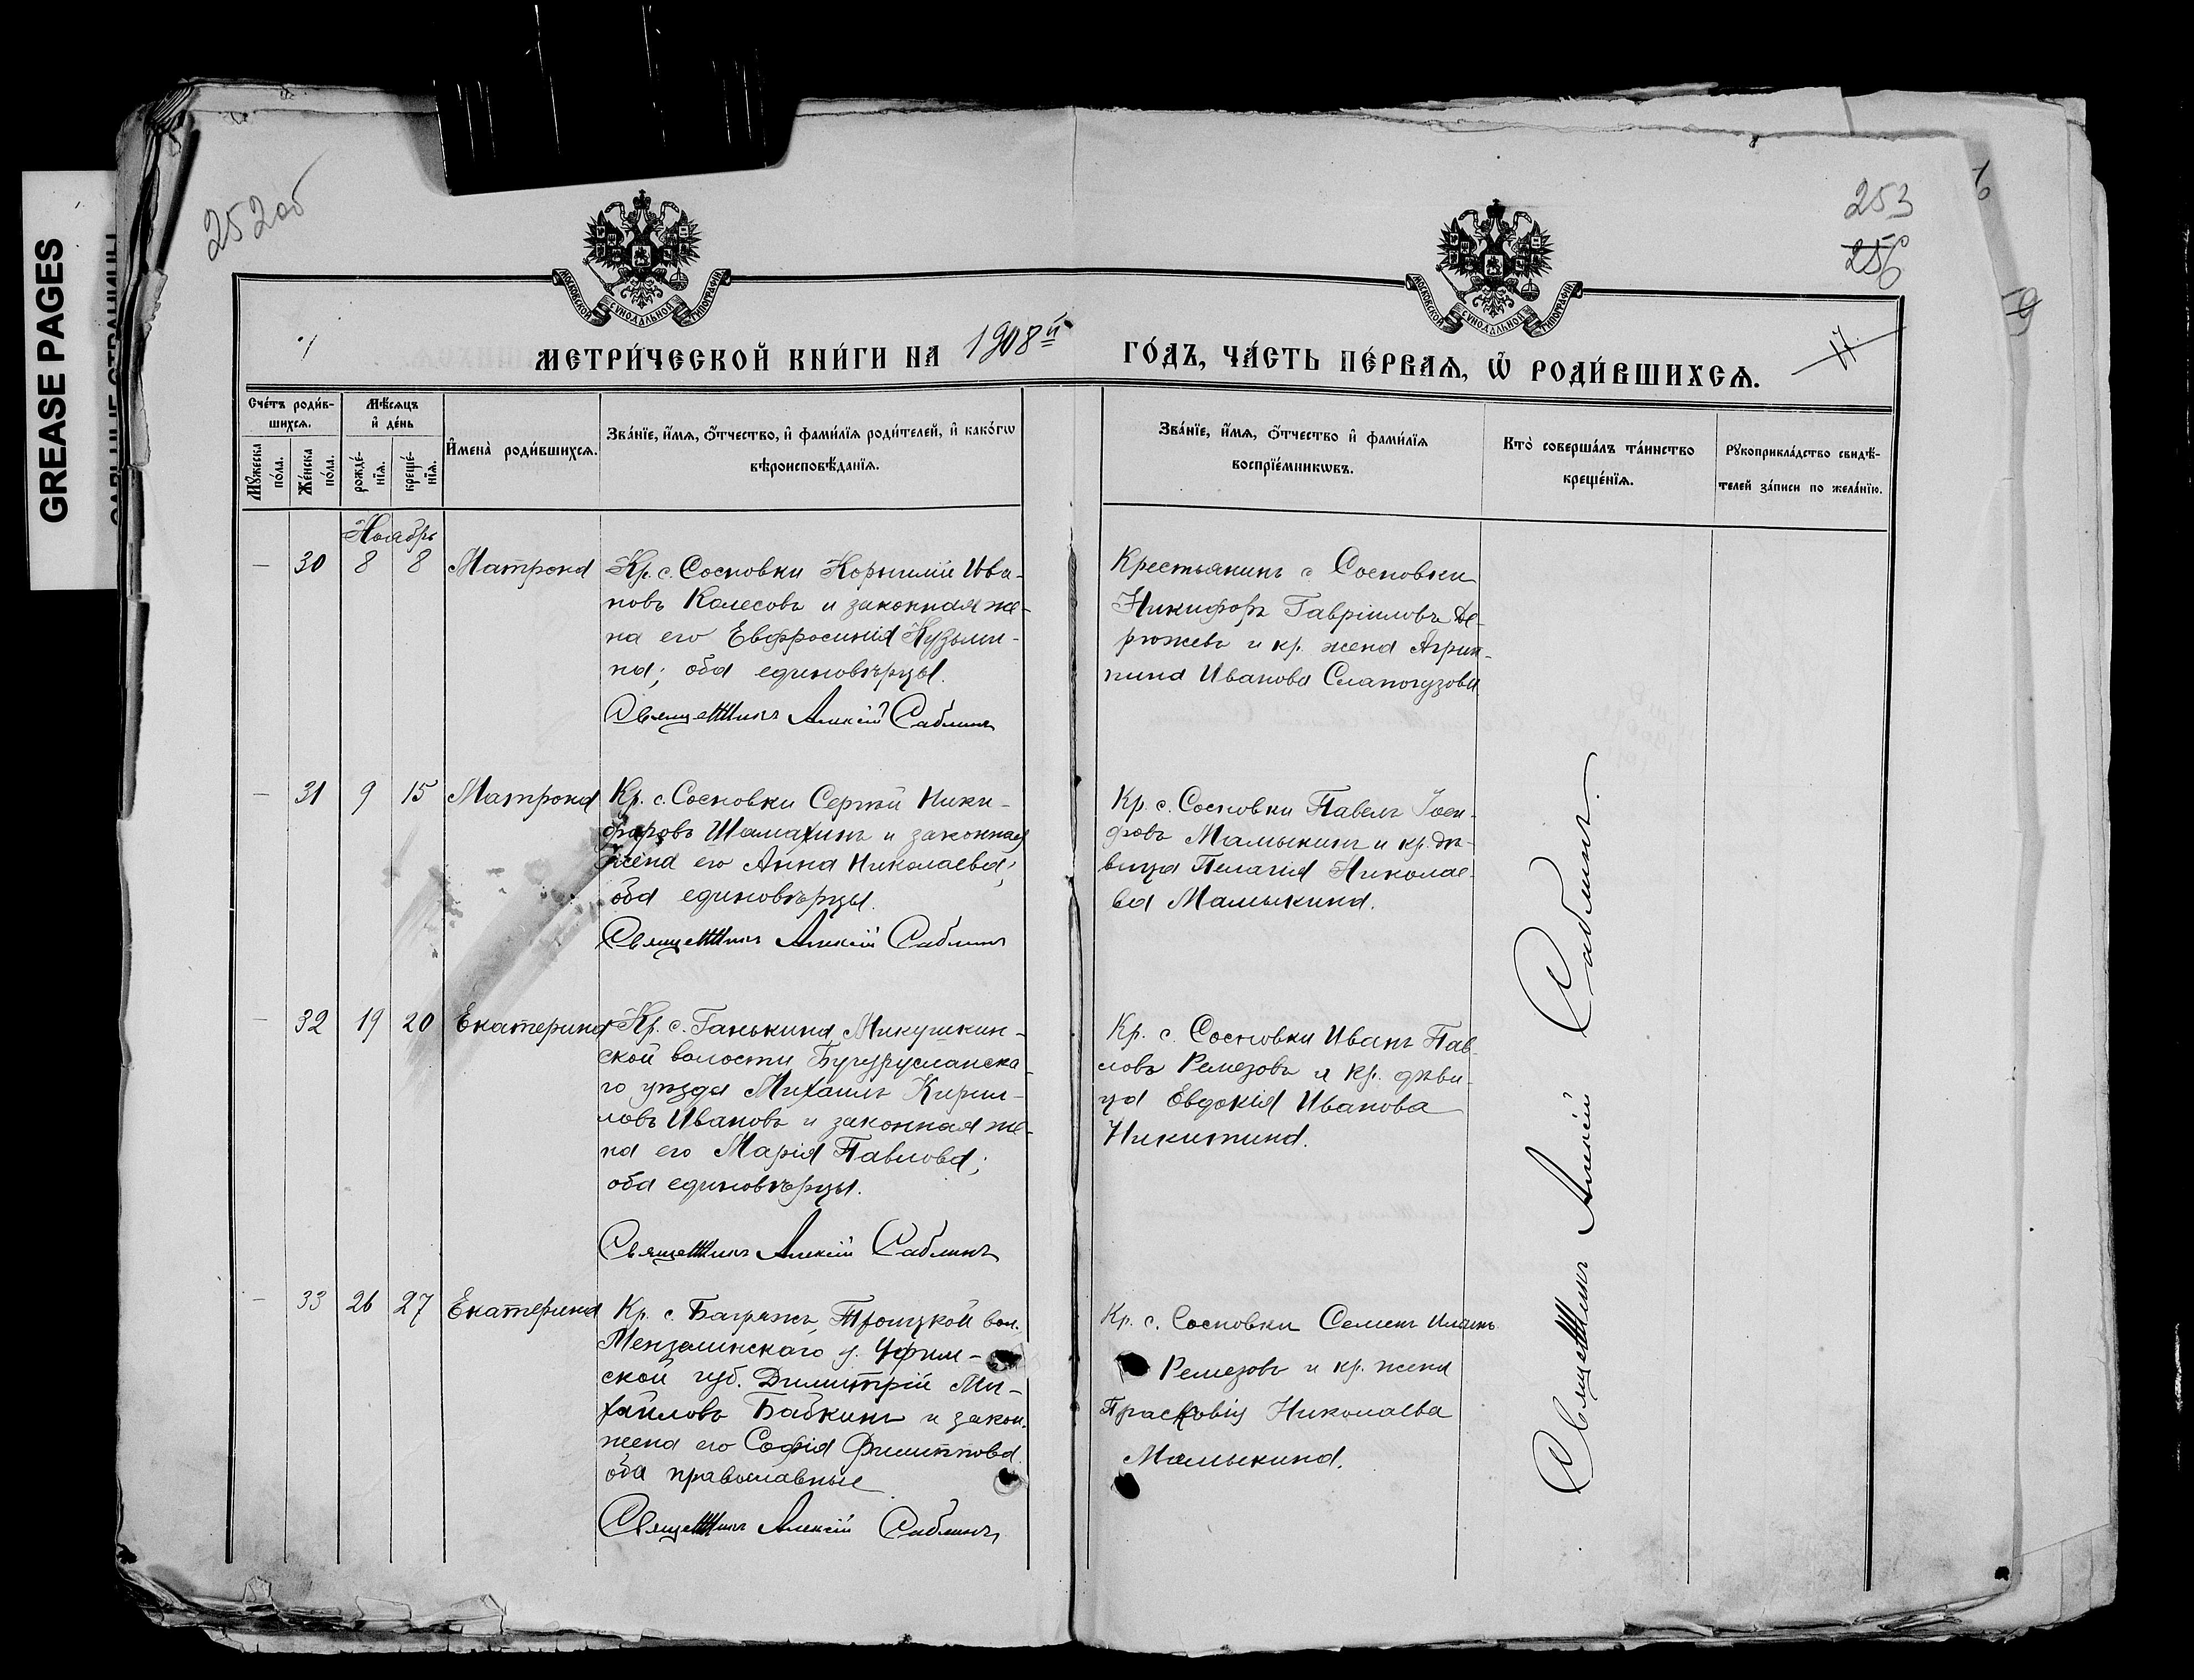 GREASE PAGES
252об
253
256
МОСКОВСКОЙ СѴНОДАЛЬНОЙ ТИПОГРАФІИ
МОСКОВСКОЙ СѴНОДАЛЬНОЙ ТИПОГРАФІИ
МЕТРИ́ЧЕСКОЙ КНИ́ГИ НА 1908й ГО́ДЪ, ЧА́СТЬ ПЕ́РВАѦ, Ѡ҆ РОДИ́ВШИХСѦ.
17
Сче́тъ роди́в-
шихсѧ.
Мꙋ́жеска по́ла.
Же́нска по́ла.
Мѣ́сѧцъ
и҆ де́нь
рожде́-
нїѧ.
креще́-
нїѧ.
И҆мена̀ роди́вшихсѧ.
Зва́нїе, и҆́мѧ, ѻ҆́тчество, и҆ фами́лїѧ роди́телей, и҆ како́гѡ
вѣроисповѣ́данїѧ.
Зва́нїе, и҆́мѧ, ѻ҆́тчество и҆ фами́лїѧ
воспрїе́мникѡвъ.
Кто̀ соверша́лъ та́инство
креще́нїѧ.
Рꙋкоприкла́дство свидѣ́-
телей за́писи по жела́нїю.
Ноябрь
— 30 8 8 Матрона
Кр. с. Сосновки Корнилій Ива-
новъ Колесовъ и законная же-
на его Евфросинія Кузьми-
на; оба единовѣрцы.
Священникъ Алексій Саблинъ
Крестьянинъ с. Сосновки
Никифоръ Гавріиловъ Де-
рюжевъ и кр. жена Агрип-
пина Иванова Слапогузова
— 31 9 15 Матрона
Кр. с. Сосновки Сергѣй Ники-
форовъ Шамахинъ и законная
жена его Анна Николаева;
оба единовѣрцы.
Священникъ Алексій Саблинъ
Кр. с. Сосновки Павелъ Іоси-
фовъ Мамыкинъ и кр. дѣ-
вица Пелагія Николае-
ва Мамыкина.
— 32 19 20 Екатерина
Кр. с. Ганькина, Микушкин-
ской волости Бугурусланска-
го уѣзда Михаилъ Кирил-
ловъ Ивановъ и законная же-
на его Марія Павлова;
оба единовѣрцы.
Священникъ Алексій Саблинъ
Кр. с. Сосновки Иванъ Пав-
ловъ Ремезовъ и кр. дѣви-
ца Евдокія Иванова
Никитина.
— 33 26 27 Екатерина
Кр. с. Багряжъ, Троицкой вол.
Мензелинскаго у. Уфим-
ской губ. Димитрій Ми-
хайловъ Бабкинъ и закон.
жена его Софія Филиппова
оба православные
Священникъ Алексій Саблинъ
Кр. с. Сосновки Семенъ
Ремезовъ и кр. жена
Прасковія Николаева
Мамыкина.
Священникъ Алексій Саблинъ.